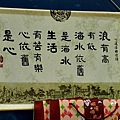 浪有高
有低
海水依舊
是海水
生活
有苦有樂
心依舊
是心